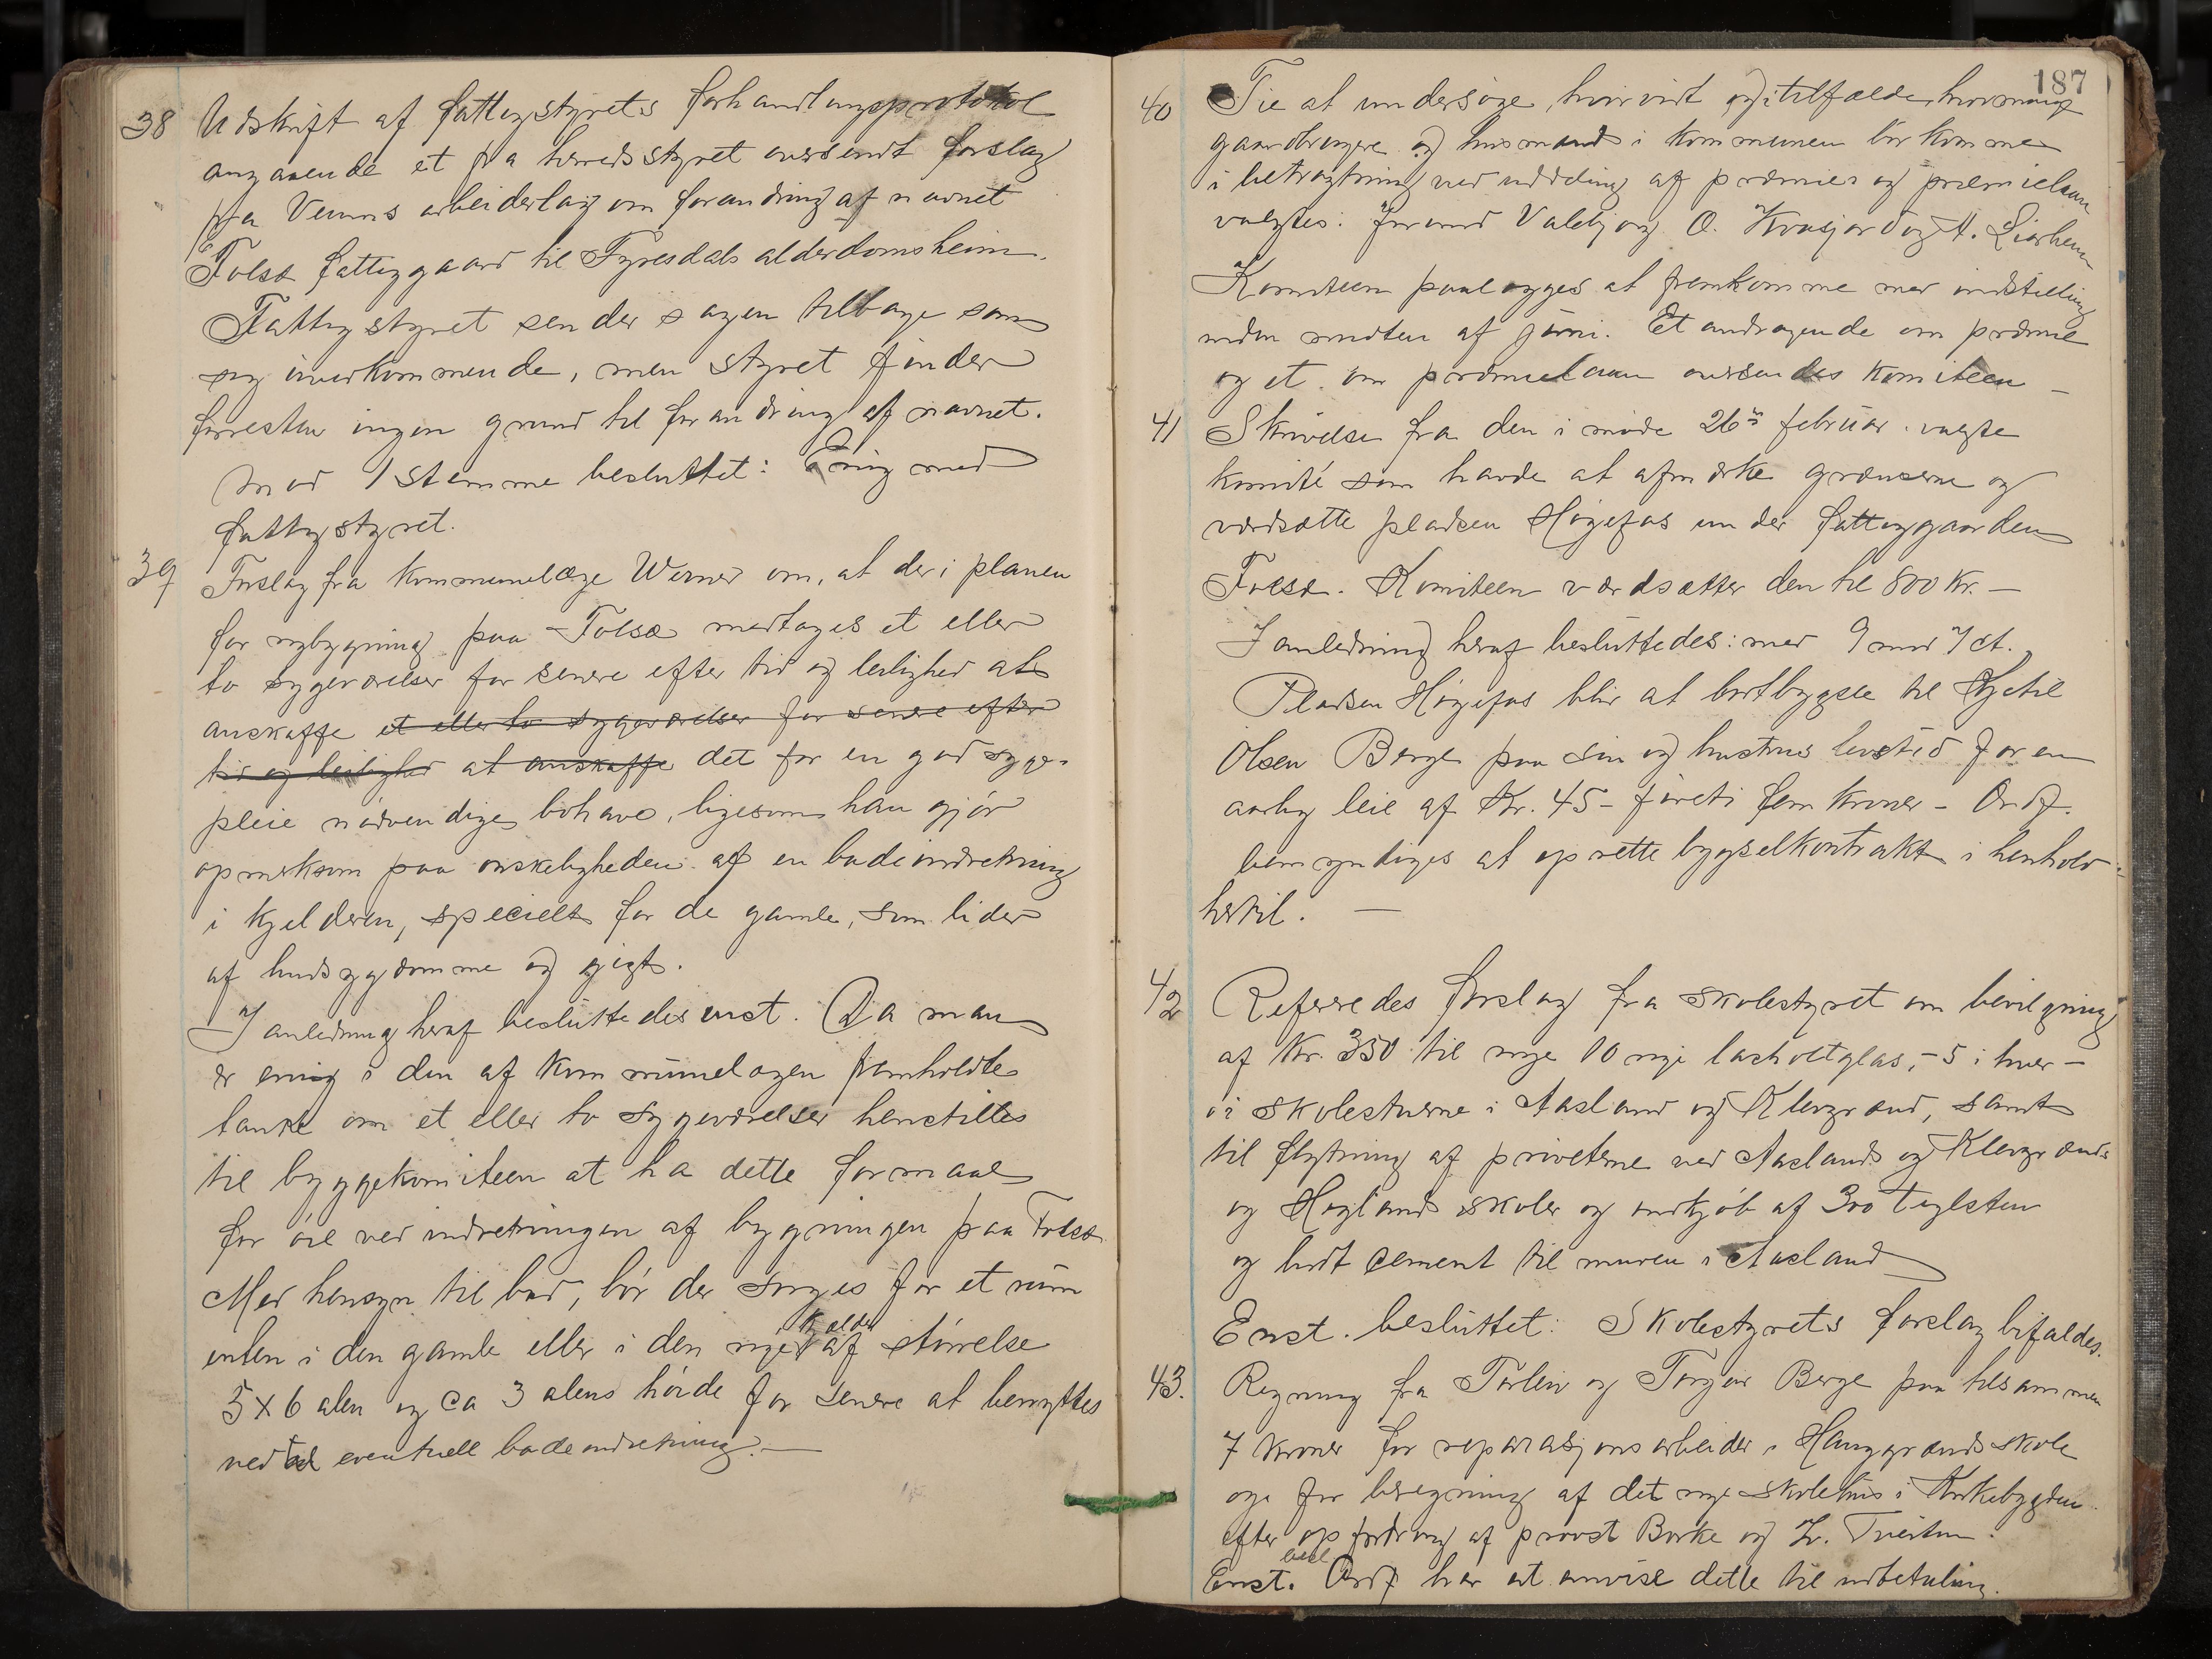 38 Udskrift af fattigstyrets forhandlingsprotokol
angaaende et fra herredsstyret oversendt forslag
fra Veums arbeiderlag om forandring af navnet
Folsæ fattiggaard til Fyresdals alderdomsheim.
Fattigstyret sender sagen tilbage som
sig uvedkommende, men styret finder
forresten ingen grund til forandring af navnet.
Mod 1 stemme besluttet: Enig med
fattigstyret.
39 Forslag fra kommunelæge Werner om, at der i planen
for nybygning paa Folsæ medtages et eller
to sygeværelser for senere efter tid og leilighed at
anskaffe et eller to sygeværelser for senere efter
tid og leilighed at anskaffe det for en god syge-
pleie nødvendige bohave, ligesom han gjør
opmerksom paa ønskeligheden af en badeindretning
i kjelderen, specielt for de gamle, som lider
af hudsygdomme og gigt.
I anledning heraf besluttedes enst. Da man
er enig i den af kommunelægen fremholdte
tanke om et eller to sygeværelser henstilles
til byggekomiteen at ha dette formaal
for øie ved indretningen af bygningen paa Folsæ
Med hensyn til bad, bør der sørges for et rum
kjelder
enten i den gamle eller i den nye af størrelse
5 x 6 alen og ca 3 alens høide for senere at benyttes
ved eventuell badeindretning. —
187
40 Til at undersøge, hvorvidt og i tilfælde hvormange
gaardbrugere og husmænd i kommunen bør komme
i betragtning ved uddeling af præmier og præmielaan
valgtes: Jørund Valebjørg O. Kvasjord og A. Liarheim
Komiteen paalægges at fremkomme med indstilling
inden midten af juni. Et andragende om præmie
og et om præmielaan oversendes komiteen —
41 Skrivelse fra den i møde 26de februar valgte
komité som havde at afmærke grænserne og
værdsætte pladsen Høgefos under fattiggaarden
Folsæ. Komiteen værdsætter den til 800 Kr. —
I anledning heraf besluttedes: med 9 mod 7 st.
Pladsen Høgefos blir at bortbygsle til Kjetil
Olsen Berge paa sin og hustrus levetid for en
aarlig leie af Kr. 45 — førti fem kroner — Ordf.
bemyndiges at oprette bygselkontrakt i henhold
hertil. —
42 Referedes forslag fra skolestyret om bevilgning
af Kr. 350 til nye 10 nye fag, — 5 i hver —
i skolestuerne i Aasland og Klevgrænd, samt
til flytning af priveterne ved Aaslands og Klevgrænds
og Hoglands skoler og indkjøb af 300 teglsten
og lidt cement til muren i Aasland
Enst. besluttet: Skolestyrets forslag bifaldes.
43. Regning fra Torleiv og Torgeir Berge paa tilsammen
7 kroner for reparasjonsarbeider i Hauggrænds skole
og for beregning af det nye skolehus i Kirkebygden
efter opfordring af provst Barke og Hr. Tveitun.
besl.
Enst. Ordf har at anvise dette til udbetaling.